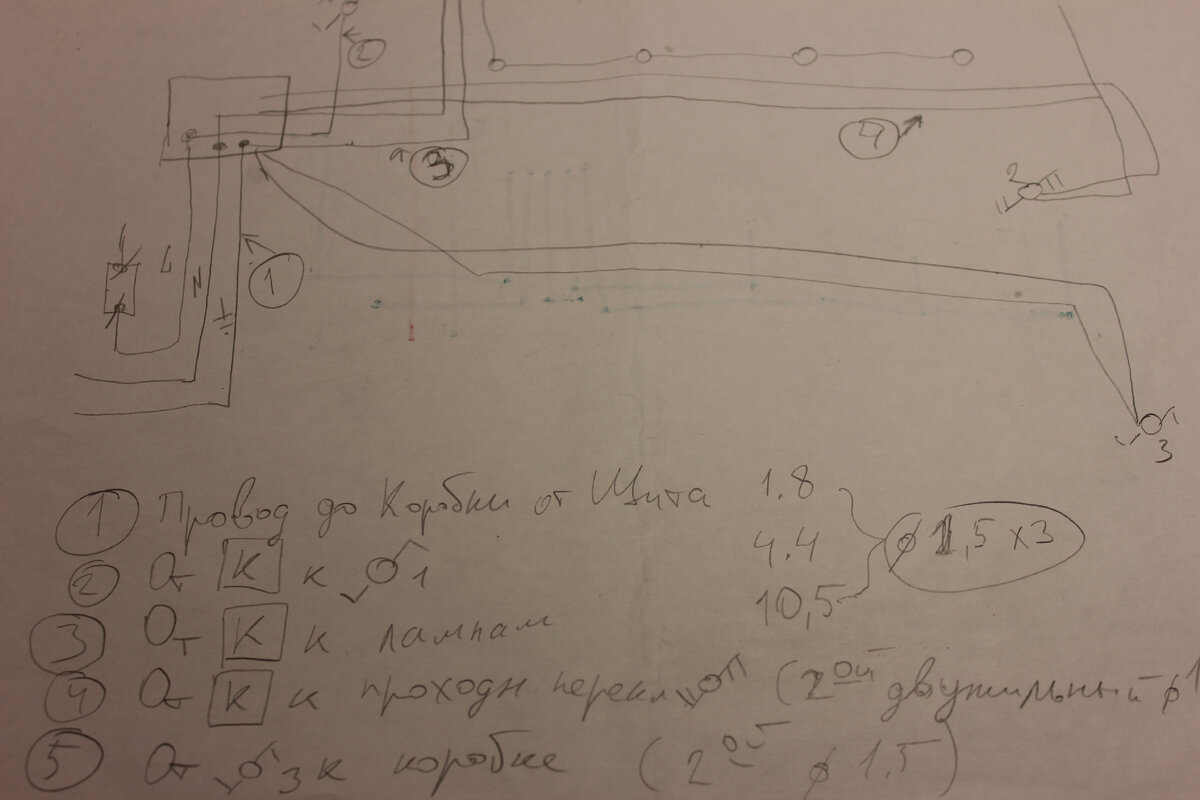 2
3
4
2
L
N
1
3
1 Провод до Коробки от Щита 1.8
4.4 ø 1,5 х 3
2 От К к 1
10,5
3 От К к лампам
4 От К к проходн. перекл (2ой двужильный ø 1
5 От 3 к коробке (2ой ø 1,5)